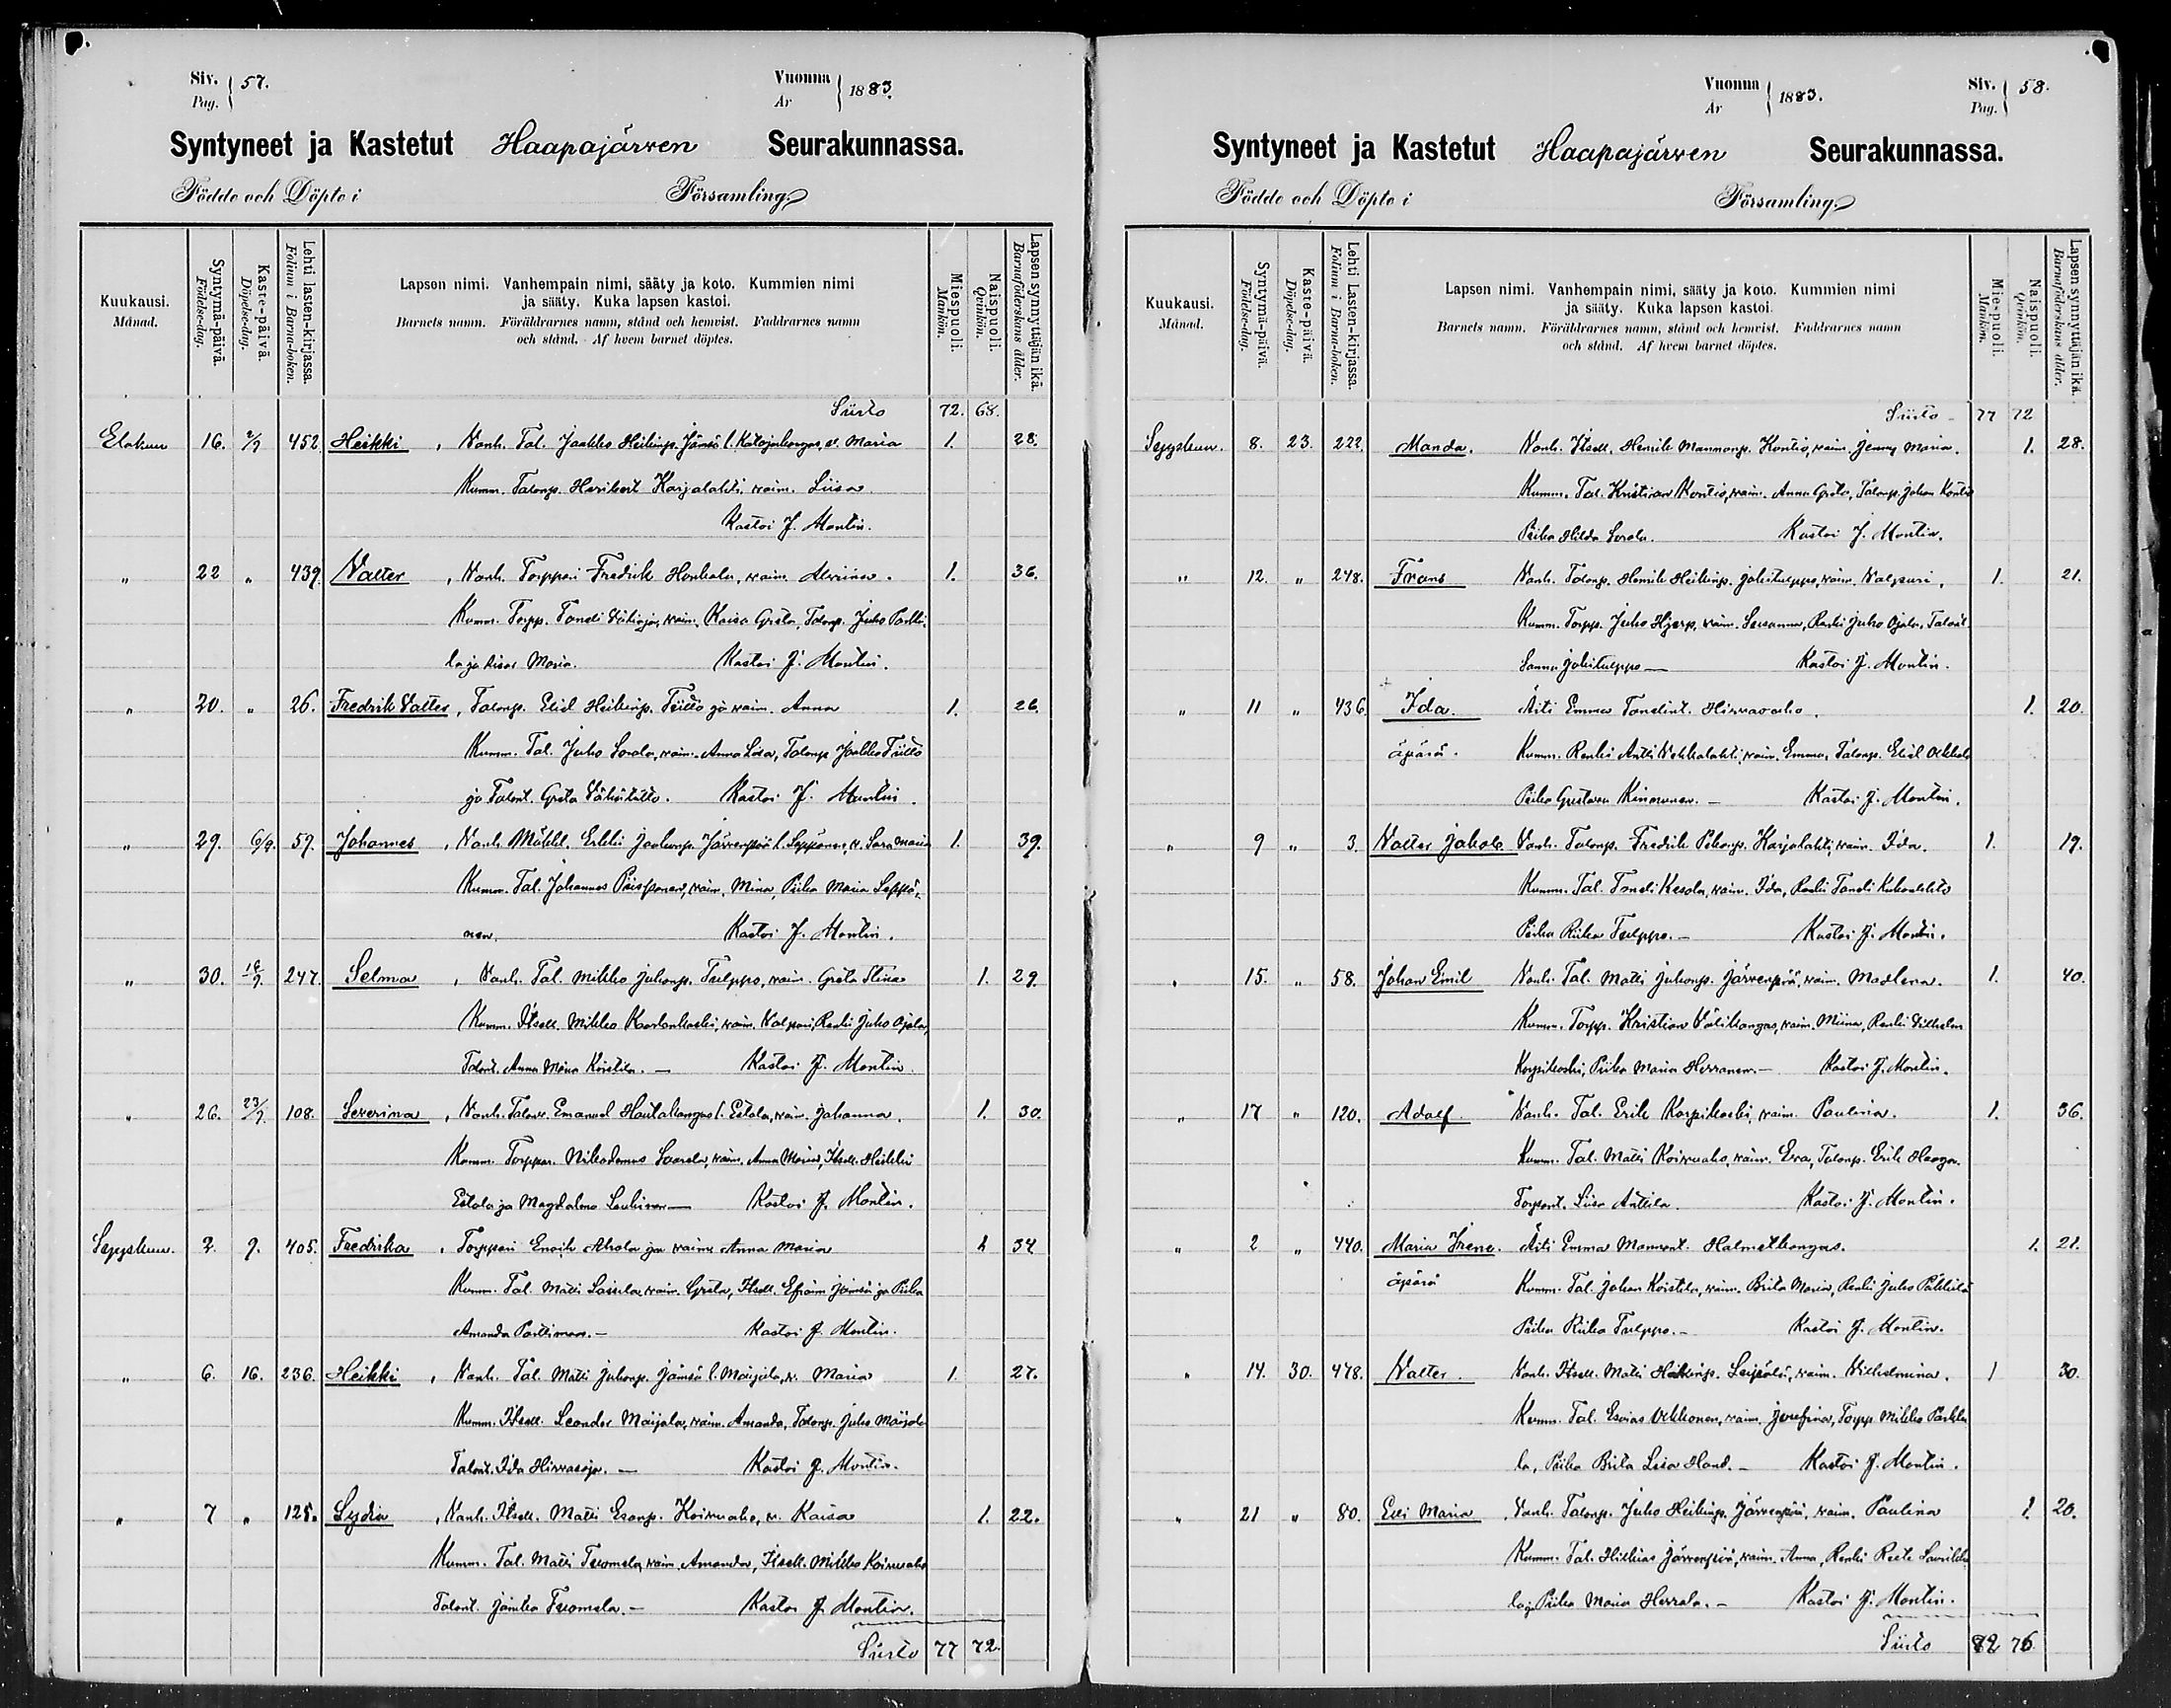 Siv. Pag. 57.
Vuonna År 1883.
Syntyneet ja Kastetut Haapajärven Seurakunnassa.
Födde och Döpte i Församling.
Kuukausi. Månad.
Syntymä-päivä. Födelse-dag.
Kaste-päivä. Döpelse-dag.
Lehti lasten-kirjassa. Folium i Barna-boken.
Lapsen nimi. Vanhempain nimi, sääty ja koto. Kummien nimi
ja sääty. Kuka lapsen kastoi.
Barnets namn. Föräldrarnes namn, stånd och hemvist. Faddrarnes namn
och stånd. Af hvem barnet döptes.
Miespuoli. Mankön.
Naispuoli. Qvinkön.
Lapsen synnyttäjän ikä. Barnaföderskans ålder.
Siirto 72. 68.
Elokuu 16. 2/9 452 Heikki, Vanh. Tal. Jaakko Heikinp. Jämsä l. Katajankangas, v. Maria 1. 28.
Kumm. Talonp. Heribert Karjalahti, vaim. Liisa
Kastoi J. Montin.
" 22 " 439. Valter, Vanh. Torppari Fredrik Honkala, vaim. 1. 36.
Kumm. Torpp. Taneli vaim. Kaisa Greta, Talonp. Juho Parkki-
la ja Maria. Kastoi J. Montin.
" 20. " 26. Fredrik Valter, Talonp. Elid Heikinp. Tiitto ja vaim. Anna 1. 26.
Kumm. Tal. Juho Sorola, vaim. Anna Lisa, Talonp. Jaakko Tiitto
ja Talont. Greta Vähätiitto. Kastoi J. Montin.
" 29. 6/9. 59. Johannes, Vanh. Mäkil. Erkki Jaakonp. Järvenpää l. Seppänen, v. Sara Maria 1. 39.
Kumm. Tal. Johannes Piispanen, vaim. Mina, Piika Maria Seppä-
nen. Kastoi J. Montin.
" 30. 16/9. 247 Selma, Vanh. Tal. Mikko Juhonp. Tulppo, vaim. Greta Stina 1. 29.
Kumm. Itsell. Mikko vaim. Valpuri, Renki Juho Ojala,
Talont. Anna Mina Koistila. — Kastoi J. Montin.
" 26. 23/9. 108. Severina, Vanh. Emanuel Hautakangas l. Eskola, vaim. Johanna. 1. 30.
Kumm. Torppar. Nikodemus Saarela, vaim. Anna Maria, Itsell. Heikki
Eskola ja Magdalena — Kastoi J. Montin.
Syyskuu. 2. 9. 405. Fredrika, Torppari Ahola ja vaim. Anna Maria 1. 34
Kumm. Tal. Matti Lassila, vaim. Greta, Itsell. Efraim Jämsä ja Piika
Amanda Parttimaa. — Kastoi J. Montin.
" 6. 16. 236. Heikki, Vanh. Tal. Matti Juhonp. Jämsä l. Maijala, v. Maria 1. 27.
Kumm. Itsell. Leander Maijala, vaim. Amanda, Talonp. Juho Maijala
Talont. Ida Hirvasoja. — Kastoi J. Montin.
" 7 " 125. Lydia, Vanh. Itsell. Matti Esanp. Koivuaho, v. Kaisa 1. 22.
Kumm. Tal. Matti Tuomela, vaim. Amanda, Itsell. Mikko Koivuaho
Talont. Tuomela. — Kastoi J. Montin.
Siirto 77 72.
Vuonna År 1883.
Siv. Pag. 58.
Syntyneet ja Kastetut Haapajärven Seurakunnassa.
Födde och Döpte i Församling.
Kuukausi. Månad.
Syntymä-päivä. Födelse-dag.
Kaste-päivä. Döpelse-dag.
Lehti Lasten-kirjassa. Folium i Barna-boken.
Lapsen nimi. Vanhempain nimi, sääty ja koto. Kummien nimi
ja sääty. Kuka lapsen kastoi.
Barnets namn. Föräldrarnes namn, stånd och hemvist. Faddrarnes namn
och stånd. Af hvem barnet döptes.
Miespuoli. Mankön.
Naispuoli. Qvinkön.
Lapsen synnyttäjän ikä. Barnaföderskans ålder.
Siirto 77 72
Syyskuu. 8. 23. 222. Manda. Vanh. Itsell. Henrik Mannonp. Kontio, vaim. Jenny Maria. 1. 28.
Kumm. Tal. Kristian Kontio, vaim. Anna Greta, Talonp. Johan Kontio
Piika Hilda Sorola. Kastoi J. Montin.
" 12. " 248. Frans Vanh. Talonp. Henrik Heikinp. Jokitulppo, vaim. Valpuri. 1. 21.
Kumm. Torpp. Juho Hjerp, vaim. Susanna, Renki Juho Ojala, Talont.
Sanna Jokitulppo — Kastoi J. Montin.
" 11 " 436. Ida. Äiti Emma Tanelint. Hirvaoaho. 1. 20.
äpärä. Kumm. Renki Antti vaim. Emma, Talonp. Elid
Piika Gustava Kinnunen. — Kastoi J. Montin.
" 9 " 3. Valter Jakob Vanh. Talonp. Fredrik Pekanp. Karjalahti, vaim. Ida. 1. 19.
Kumm. Tal. Taneli Kesola, vaim. Ida, Renki Taneli
Piika Riika Tulppo. — Kastoi J. Montin.
" 15. " 58. Johan Emil Vanh. Tal. Matti Juhonp. Järvenpää, vaim. Madlena. 1. 40.
Kumm. Torpp. Kristian Välikangas, vaim. Miina, Renki Vilhelm
Korpikoski, Piika Maria Herranen. — Kastoi J. Montin.
" 17 " 120. Adolf. Vanh. Tal. Erik Korpikoski, vaim. Paulina. 1. 36.
Kumm. Tal. Matti Koivuaho, vaim. Eva, Talonp. Erik Haaga.
Torpant. Liisa Anttila. Kastoi J. Montin.
" 2 " 440. Maria Irene. Äiti Emma Halmetkangas. 1. 21.
äpärä Kumm. Tal. Johan Koistila, vaim. Brita Maria, Renki Juho
Piika Riika Tulppo. — Kastoi J. Montin.
" 14. 30. 478. Valter. Vanh. Itsell. Matti Heikinp. vaim. Vilhelmina. 1 30.
Kumm. Tal. Esaias Ukkonen, vaim. Josefina, Torpp. Mikko Parkki-
la, Piika Brita Lisa Hand. — Kastoi J. Montin.
" 21 " 80. Elli Maria. Vanh. Talonp. Juho Heikinp. Järvenpää, vaim. Paulina 1. 20.
Kumm. Tal. Järvenpää, vaim. Anna, Renki
la ja Piika Maria Herrala. — Kastoi J. Montin.
Siirto 82 76